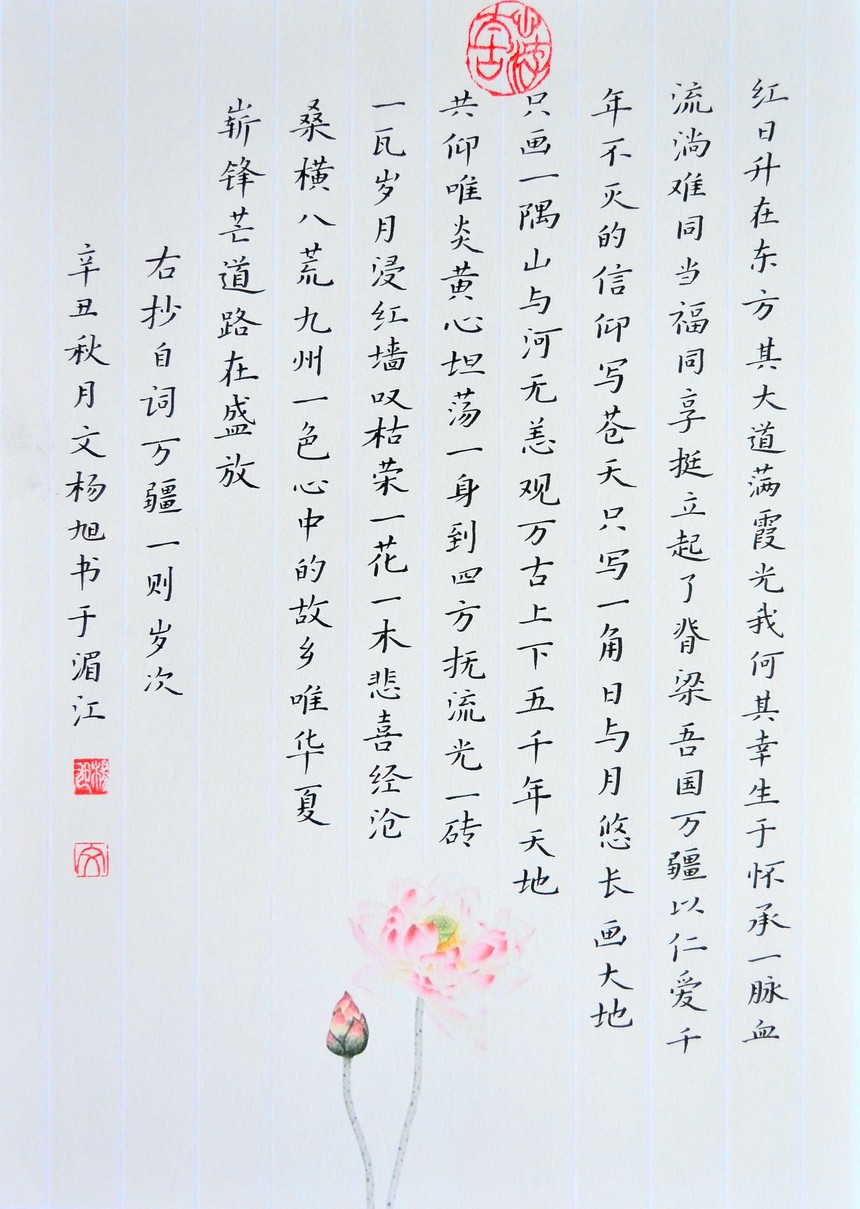 红日升在东方其大道满霞光我何其幸生于怀承一脉血
流淌难同当福同享挺立起了脊梁吾国万疆以仁爱千
年不灭的信仰写苍天只写一角日与月悠长画大地
只画一隅山与河无恙观万古上下五千年天地
共仰唯炎黄心坦荡一身到四方抚流光一砖
一瓦岁月浸红墙叹枯荣一花一木悲喜经沧
桑横八荒九州一色心中的故乡唯华夏
崭锋芒道路在盛放
右抄自词万疆一则岁次
辛丑秋月文杨旭书于湄江
文